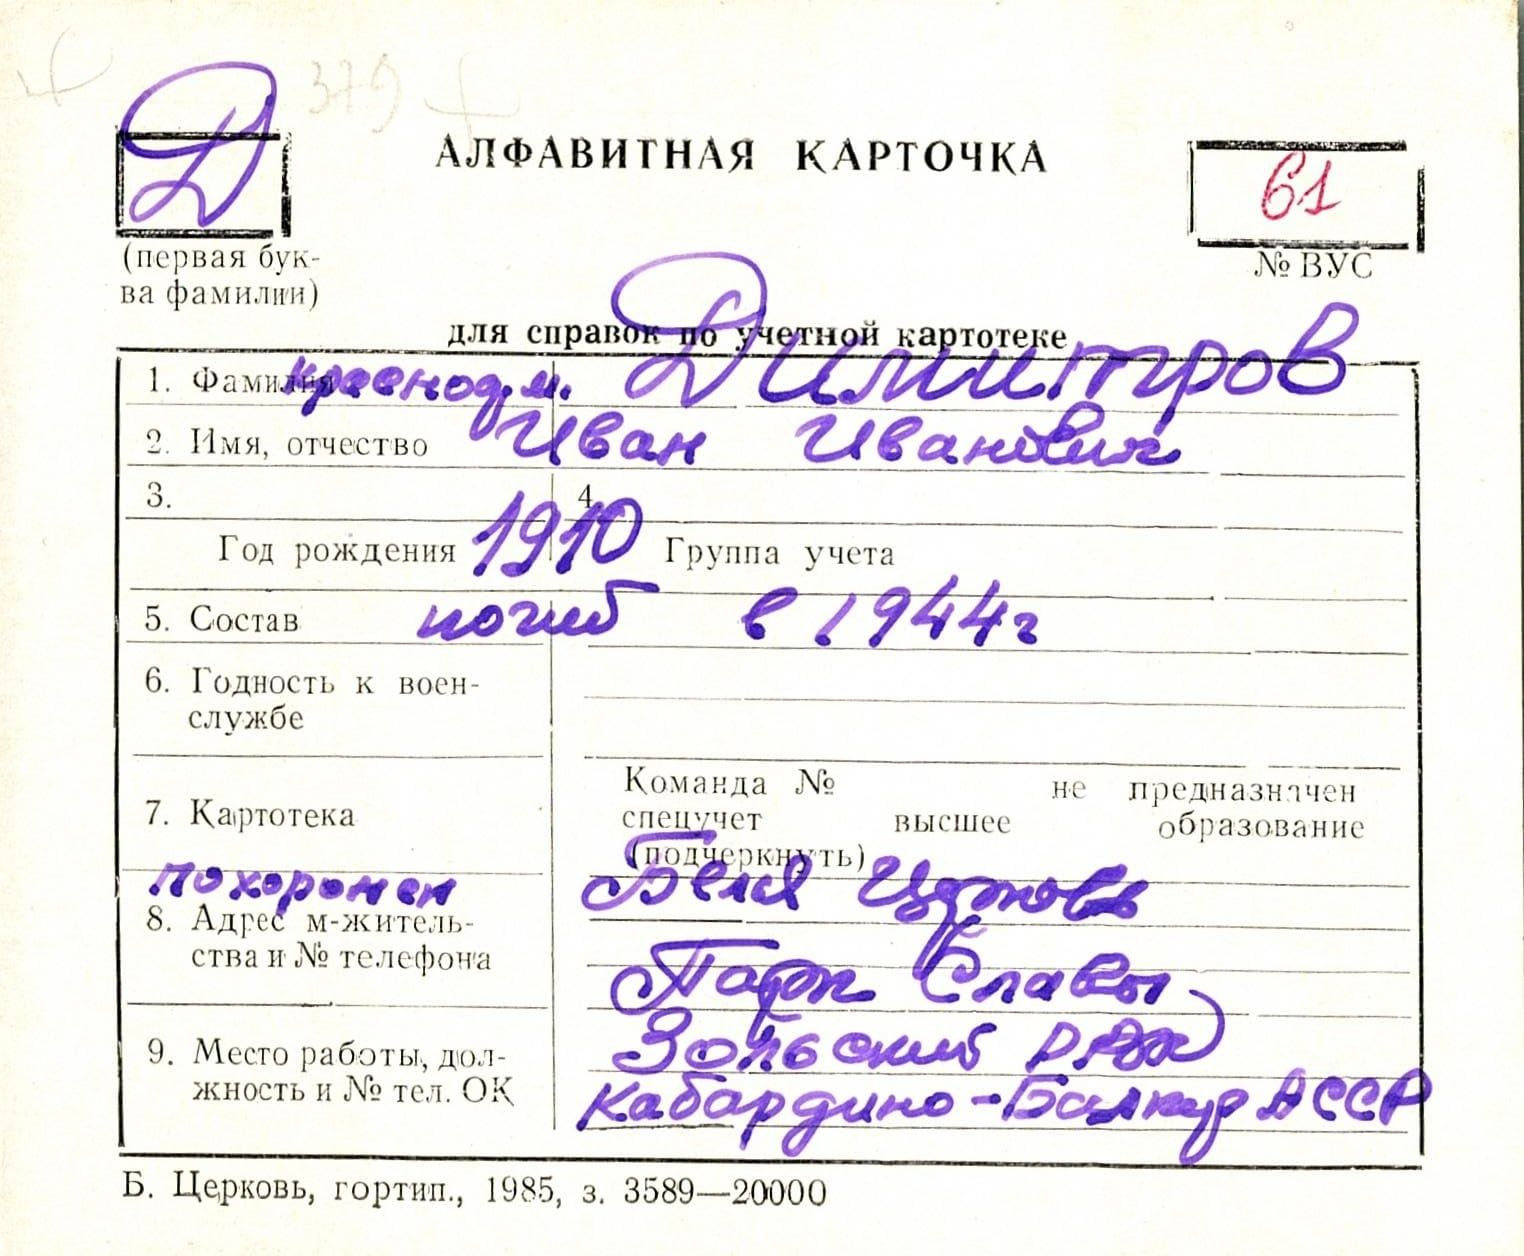 379
Д
АЛФАВИТНАЯ КАРТОЧКА
61
(первая бук-
ва фамилии)
№ ВУС
для справок по учетной картотеке
1. Фамилия краснод.м. Димитров
2. Имя, отчество Иван Иванович
3. 4.
Год рождения 1910 Группа учета
5. Состав погиб в 1944г
6. Годность к воен-
службе
7. Картотека
Команда № не предназначен
спецучет высшее образование
(подчеркнуть)
похоронен Белая Церковь
8. Адрес м-житель-
ства и № телефона
Парк Славы
9. Место работы, дол-
жность и № тел. ОК
Зольский РВК
Кабардино-Балкар АССР
Б. Церковь, гортип., 1985, з. 3589—20000